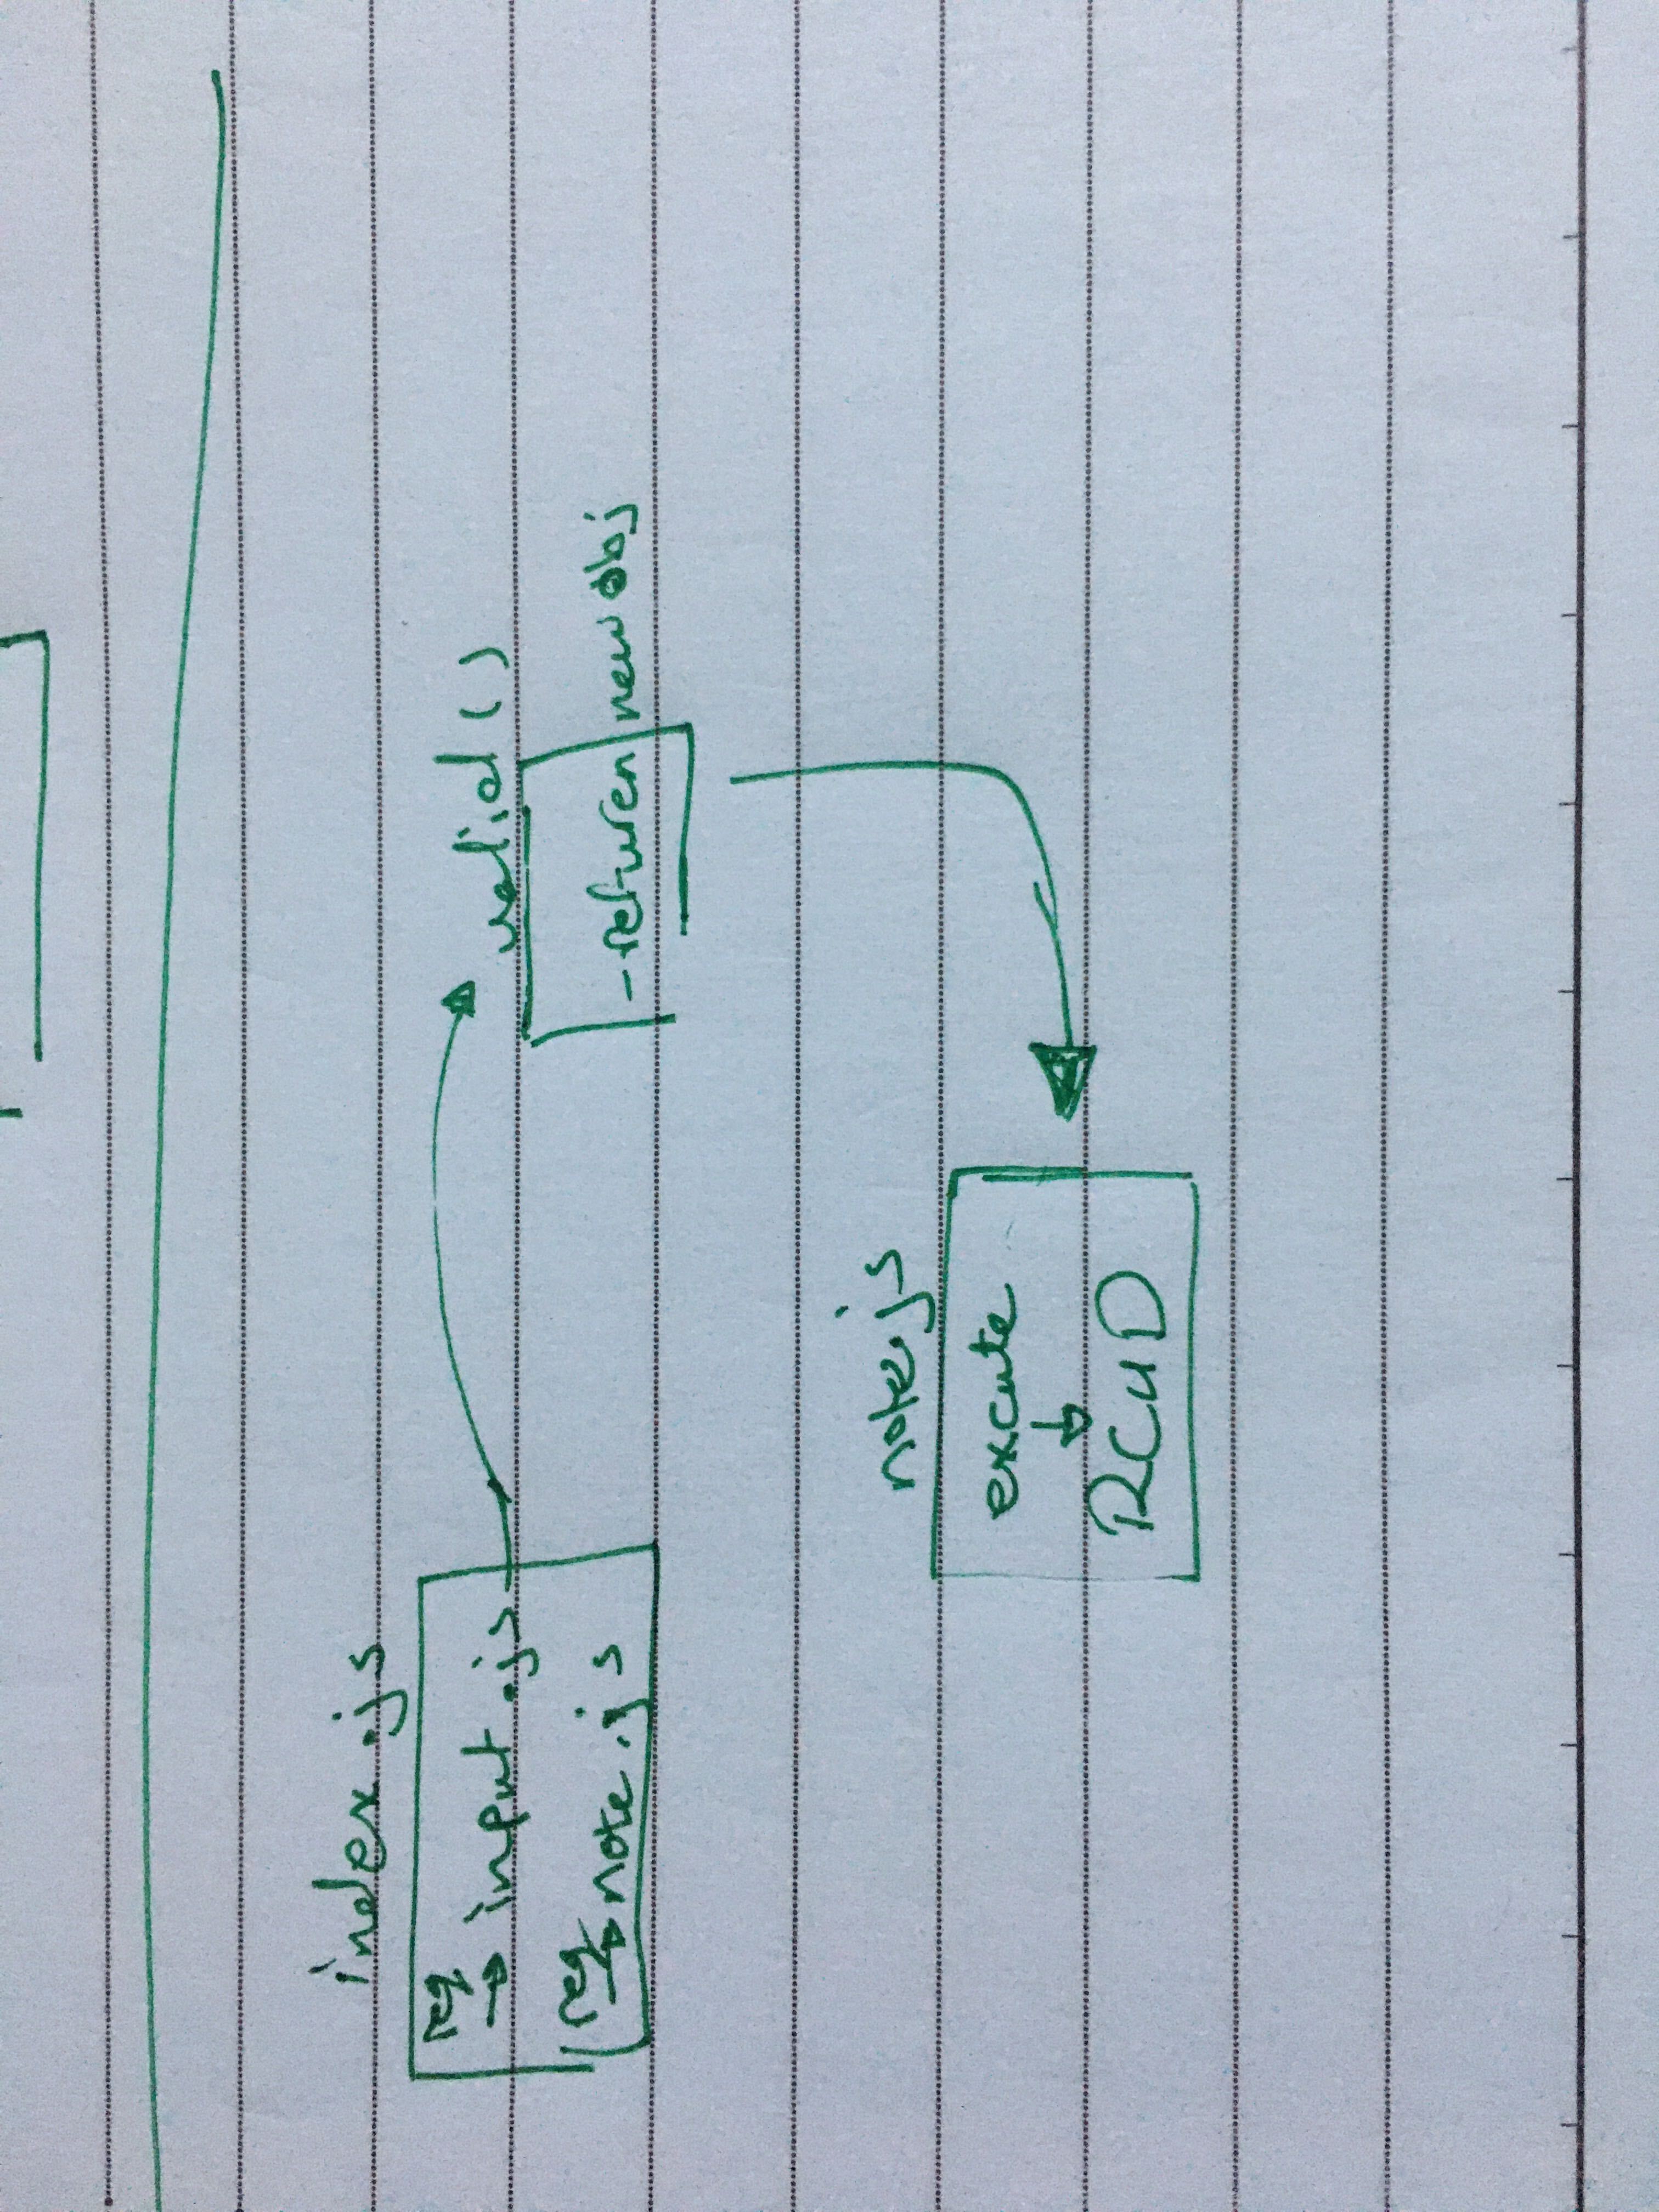 index.js
req
→ input.js
req
→ note.js
valid()
- returen new obj
note.js
excute
↓
RCUD